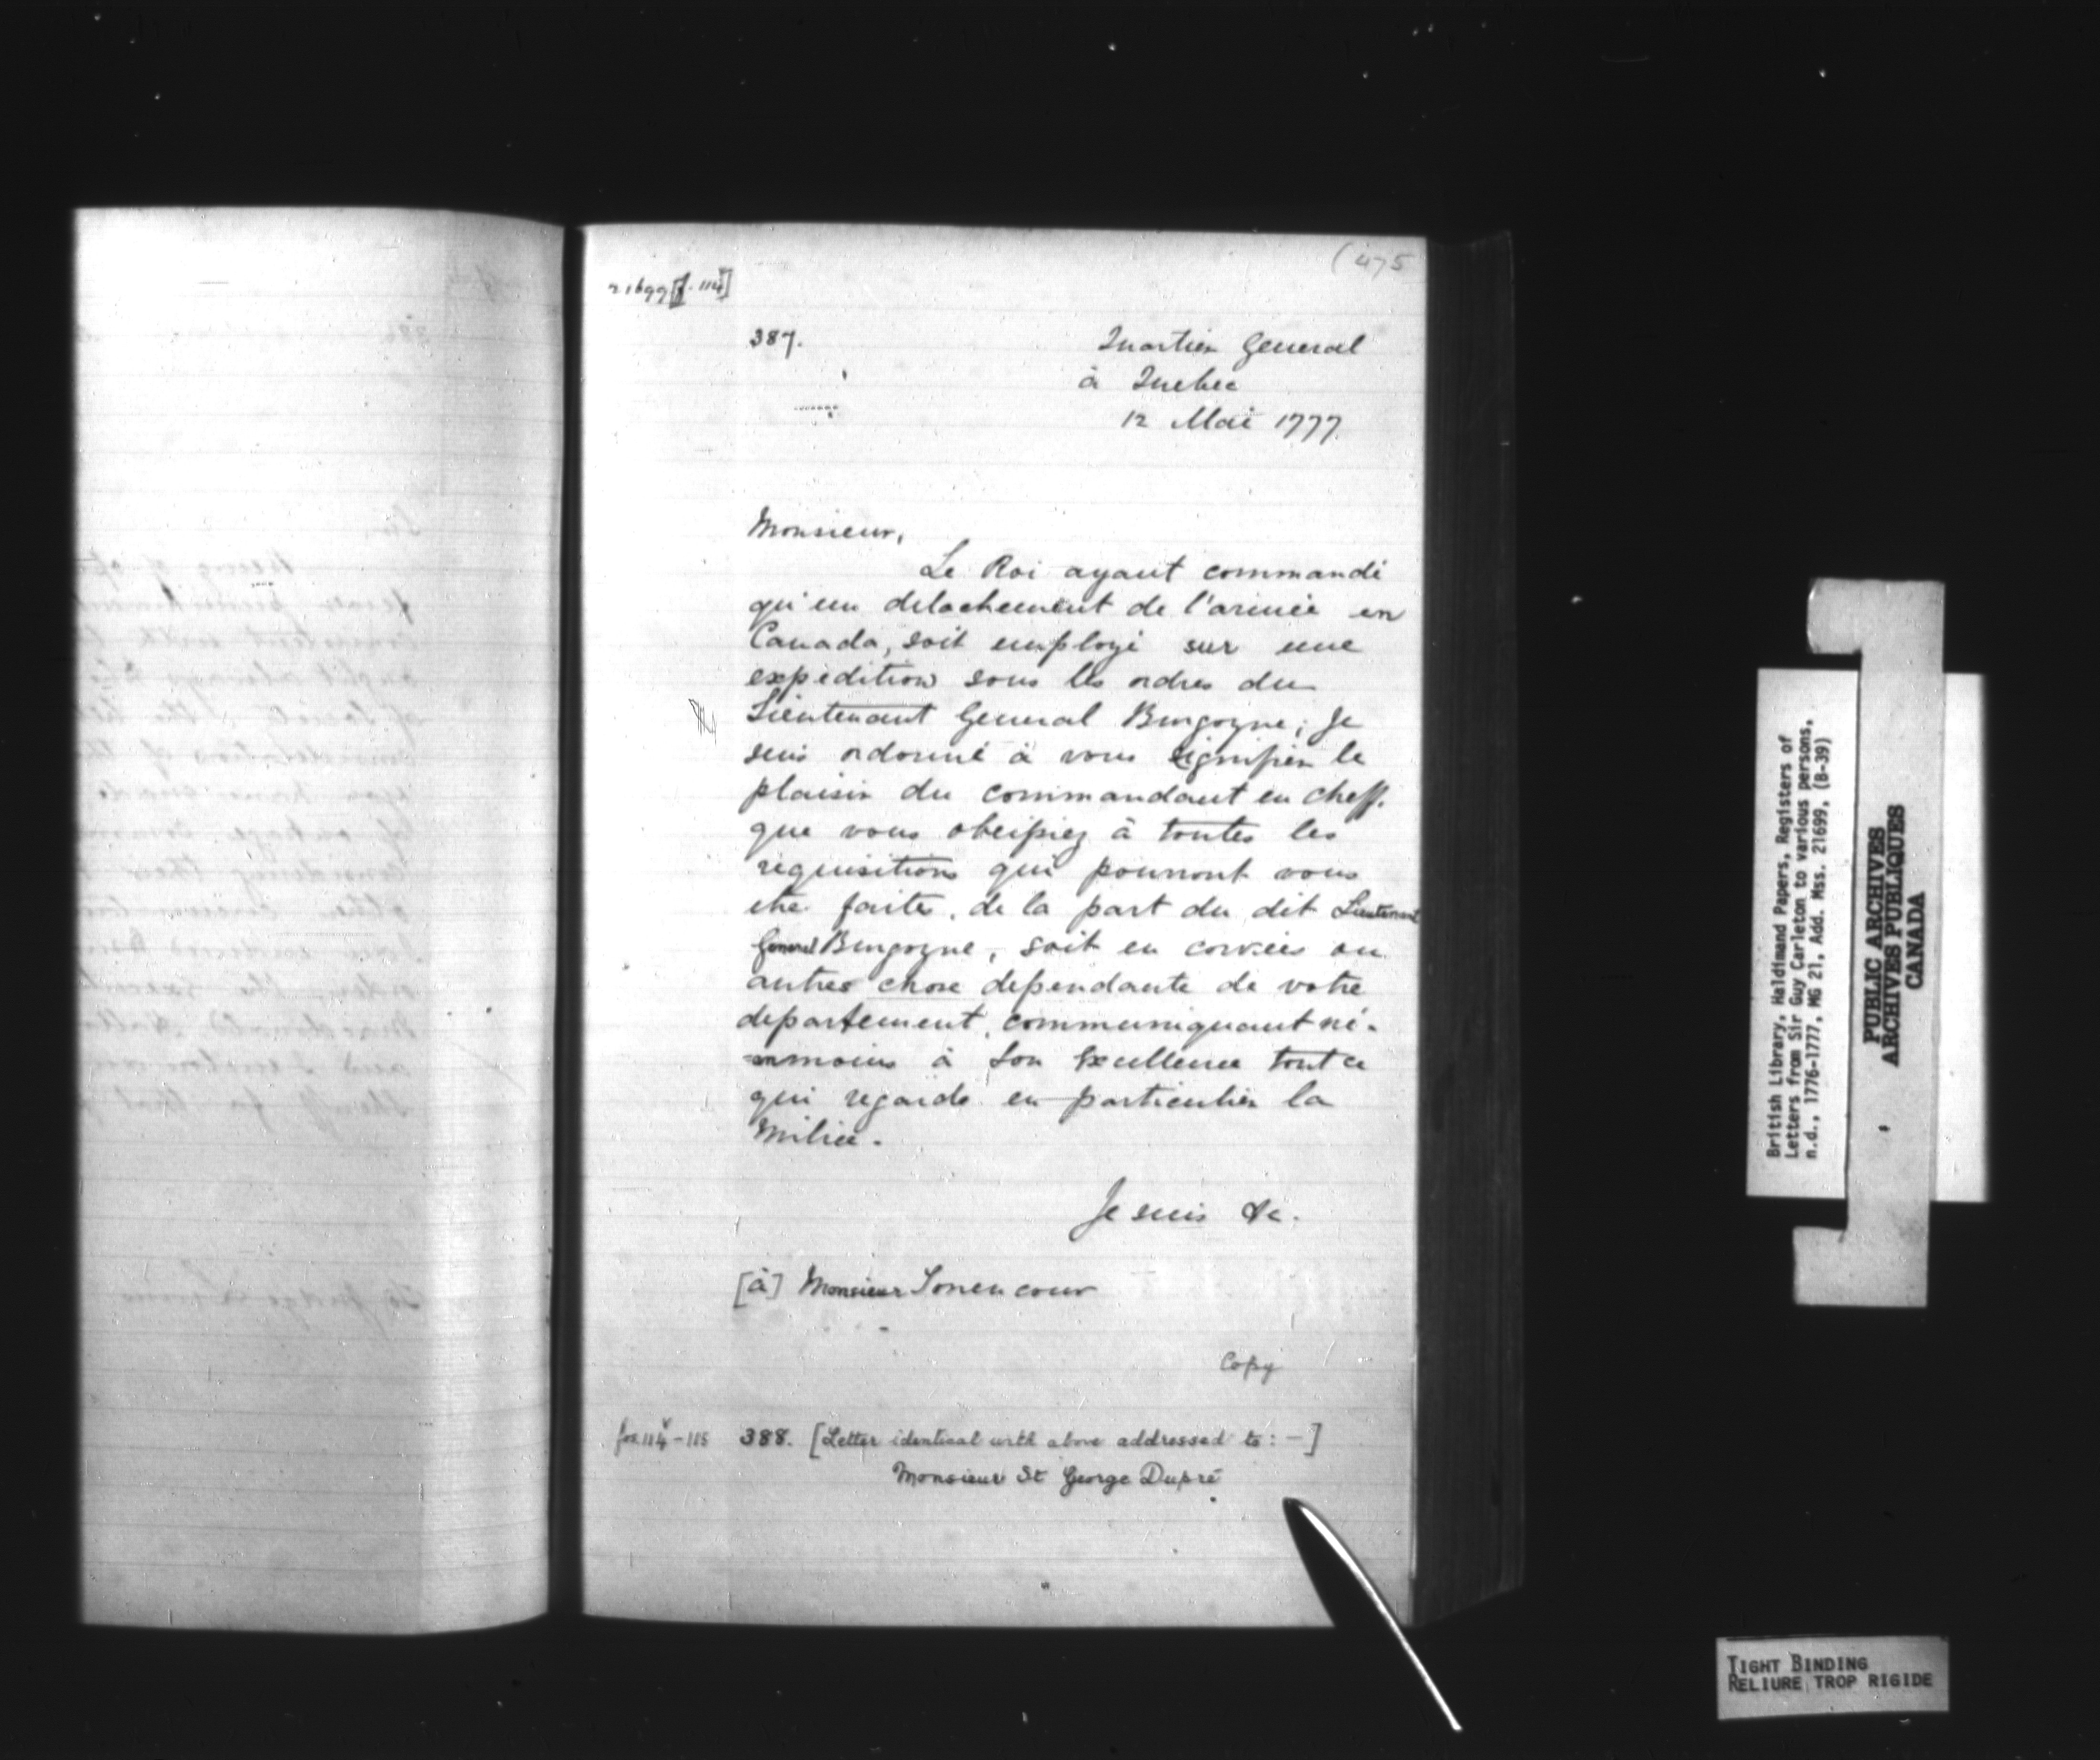 (475
21699 [f. 114v]
387.
Quartier General
à Quebec
12 Mai 1777
Monsieur,
Le Roi ayant commandé
qu'un detachement de l'armée en
Canada, soit employé sur une
expedition sous les ordres du
Lieutenant General Burgoyne; Je
suis ordonné à vous signifier le
plaisir du commandant en cheff.
que vous obeissiez à toutes les
requisitions qui pourront vous
etre faites, de la part du dit Lieutenant
General Burgoyne, soit en corvées ou
autres chose dependante de votre
departement, communiquant né-
anmoins à Son Excellence tout ce
qui regarde en particulier la
Milice.
Je suis &c.
[à] Monsieur Tonencour
Copy
fos 114v-115 388. [Letter identical with above addressed to: -]
Monsieur St George Dupré
British Library, Haldimand Papers, Registers of
Letters from Sir Guy Carleton to various persons,
n.d., 1776-1777, MG 21, Add. Mss. 21699, (B-39)
PUBLIC ARCHIVES
ARCHIVES PUBLIQUES
CANADA
TIGHT BINDING
RELIURE TROP RIGIDE